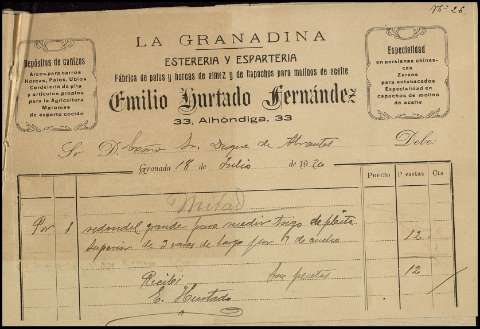 Nº 26
LA GRANADINA
ESTERERIA Y ESPARTERIA
Fábrica de palos y horcas de almez y de Capachos para molinos de aceite
Emilio Hurtado Fernández
33, Alhóndiga, 33
Depósitos de cañizos
Arcos para carros
Horcas, Palos, Ubios
Cordelería de pita
y artículos propios
para la Agricultura
Maromas
de esparto cocido
Especialidad
en persianas chinescas
Zarzos
para entoldados
Especialidad en
capachos de molino
de aceite
Sr. D. Excmo Sr. Duque de Abrantes Debe
Granada 18 de Julio de 192
PRECIO Pesetas Cts
Mitad
Por 1 redondel grande para medir trigo de pleita
superior de 3 varas de largo por 9 de 12
Recibí pesetas 12
E. Hurtado